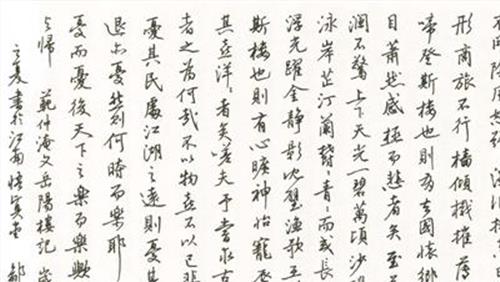 形商旅不行檣傾檝摧薄
啼登斯樓也則有去國懷鄉
目蕭然感極而悲者矣至
瀾不驚上下天光一碧萬頃沙
泳岸芷汀蘭鬱々青々而或長
浮光躍金靜影沈璧漁歌互
斯樓也則有心曠神怡寵辱
其喜洋々者矣嗟夫予嘗求古
者之為何哉不以物喜不以己悲
憂其民處江湖之遠則憂其
退亦憂然則何時而樂耶
憂而憂後天下之樂而樂歟
與歸 範仲淹文岳陽樓記 歲
立夏書於江南悟